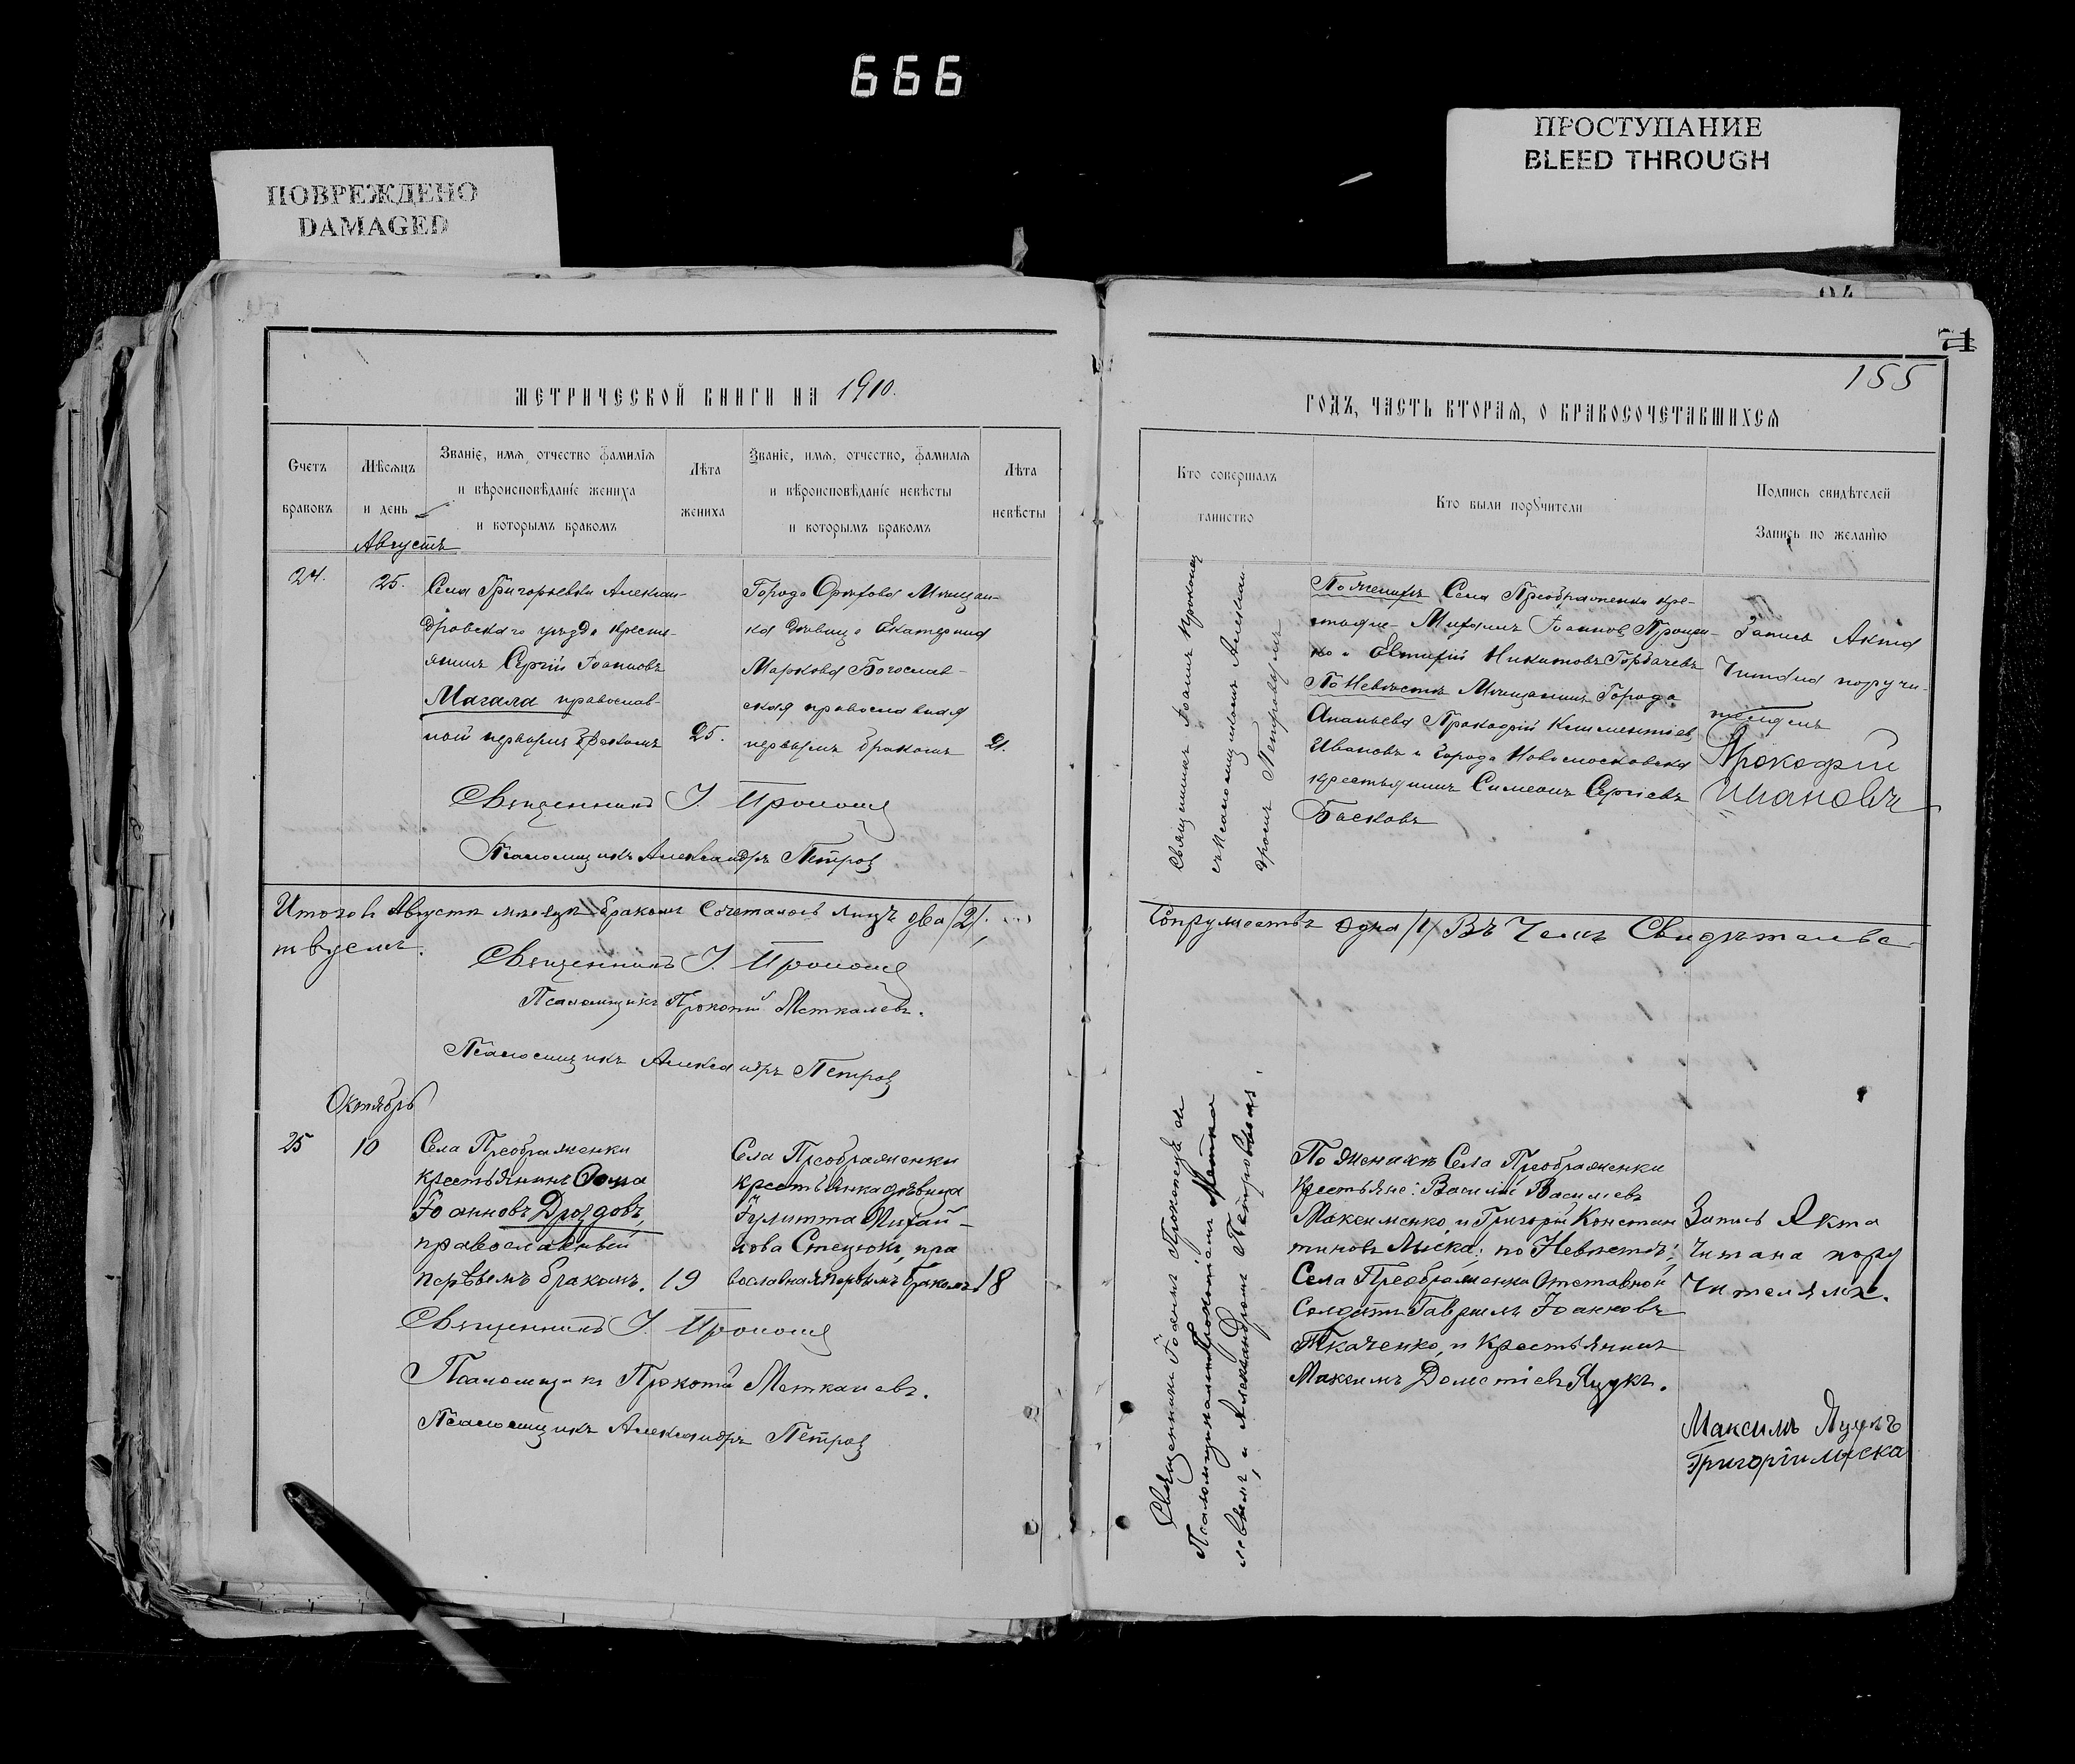 666
ПОВРЕЖДЕНО
DAMAGED
ПРОСТУПАНИЕ
BLEED THROUGH
71
155
МЕТРИЧЕСКОЙ КНИГИ НА 1910.
Счетъ
браковъ
Мѣсяцъ
и день
Званіе, имя, отчество фамилія
и вѣроисповѣданіе жениха
и которымъ бракомъ
Лѣта
жениха
Званіе, имя, отчество, фамилія
и вѣроисповѣданіе невѣсты
и которымъ бракомъ
Лѣта
невѣсты
Августъ
24.
25.
Села Григорьевки Алексан-
дровскаго уѣзда кресть-
янинъ Сергій Іоанновъ
Магала православ-
ной первымъ бракомъ
25.
Города Орѣхова Мѣщан-
ка дѣвица Екатерина
Маркова Богослав-
ская православная
первымъ бракомъ
21.
Священникъ І.
Псаломщикъ Александръ Петров
Итого въ Августѣ мѣсяцѣ бракомъ сочеталось лицъ два /2/,
твуемъ.
Священникъ І.
Псаломщикъ Прокопій Меткалевъ.
Псаломщикъ Александръ Петров
Октябрь
25
10
Села Преображенки
крестьянинъ Ѳома
Іоанновъ Дроздовъ,
православный
первымъ бракомъ.
19
Села Преображенки
крестьянка дѣвица
Іулитта Михай-
лова Стецюкъ, пра
вославная первымъ бракомъ
18
Священникъ І.
Псаломщикъ Прокопій Меткалевъ.
Псаломщикъ Александръ Петров
ГОДЪ, ЧАСТЬ ВТОРАЯ, О БРАКОСОЧЕТАВШИХСЯ
Кто совершалъ
таинство
Кто были поручители
Подпись свидѣтелей
Запись по желанію
Священникъ Іоаннъ
съ Псаломщикомъ Алексан
дромъ Петровымъ
По женихѣ Села Преображенки кре-
стьяне Михаилъ Іоанновъ
ко и Евтихій Никитовъ Горбачевъ
По Невѣстѣ Мѣщанинъ Города
Ананьева Прокофій Климентіев
Ивановъ и Города Новомосковска
крестьянинъ Симеонъ Сергіевъ
Басковъ
Запись Акта
Читана поручи-
телямъ
Прокофій
Ивановъ
Супружествъ одна /1/ Въ Чемъ Свидѣтельс-
Священникъ Іоаннъ
Псаломщиками Прокопіемъ Метка
левымъ, и Александромъ Петровымъ.
По женихѣ Села Преображенки
крестьяне: Василій Васильевъ
Максименко, и Григорій Констан
тиновъ Мыска; по Невѣстѣ;
Села Преображенки Отставной
Солдатъ Гавріилъ Іоанновъ
Ткаченко, и крестьянинъ
Максимъ Дометіевъ Яцукъ.
Запись Акта
Читана пору
Чителямъ.
Максимъ Яцукъ
Григорій Мыска